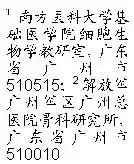 1 南方医科大学基
础医学院细胞生
物学教研室，广东
省 广 州 市
510515; 2 解放军
广州军区广州总
医院骨科研究所，
广 东 省 广 州 市
510010